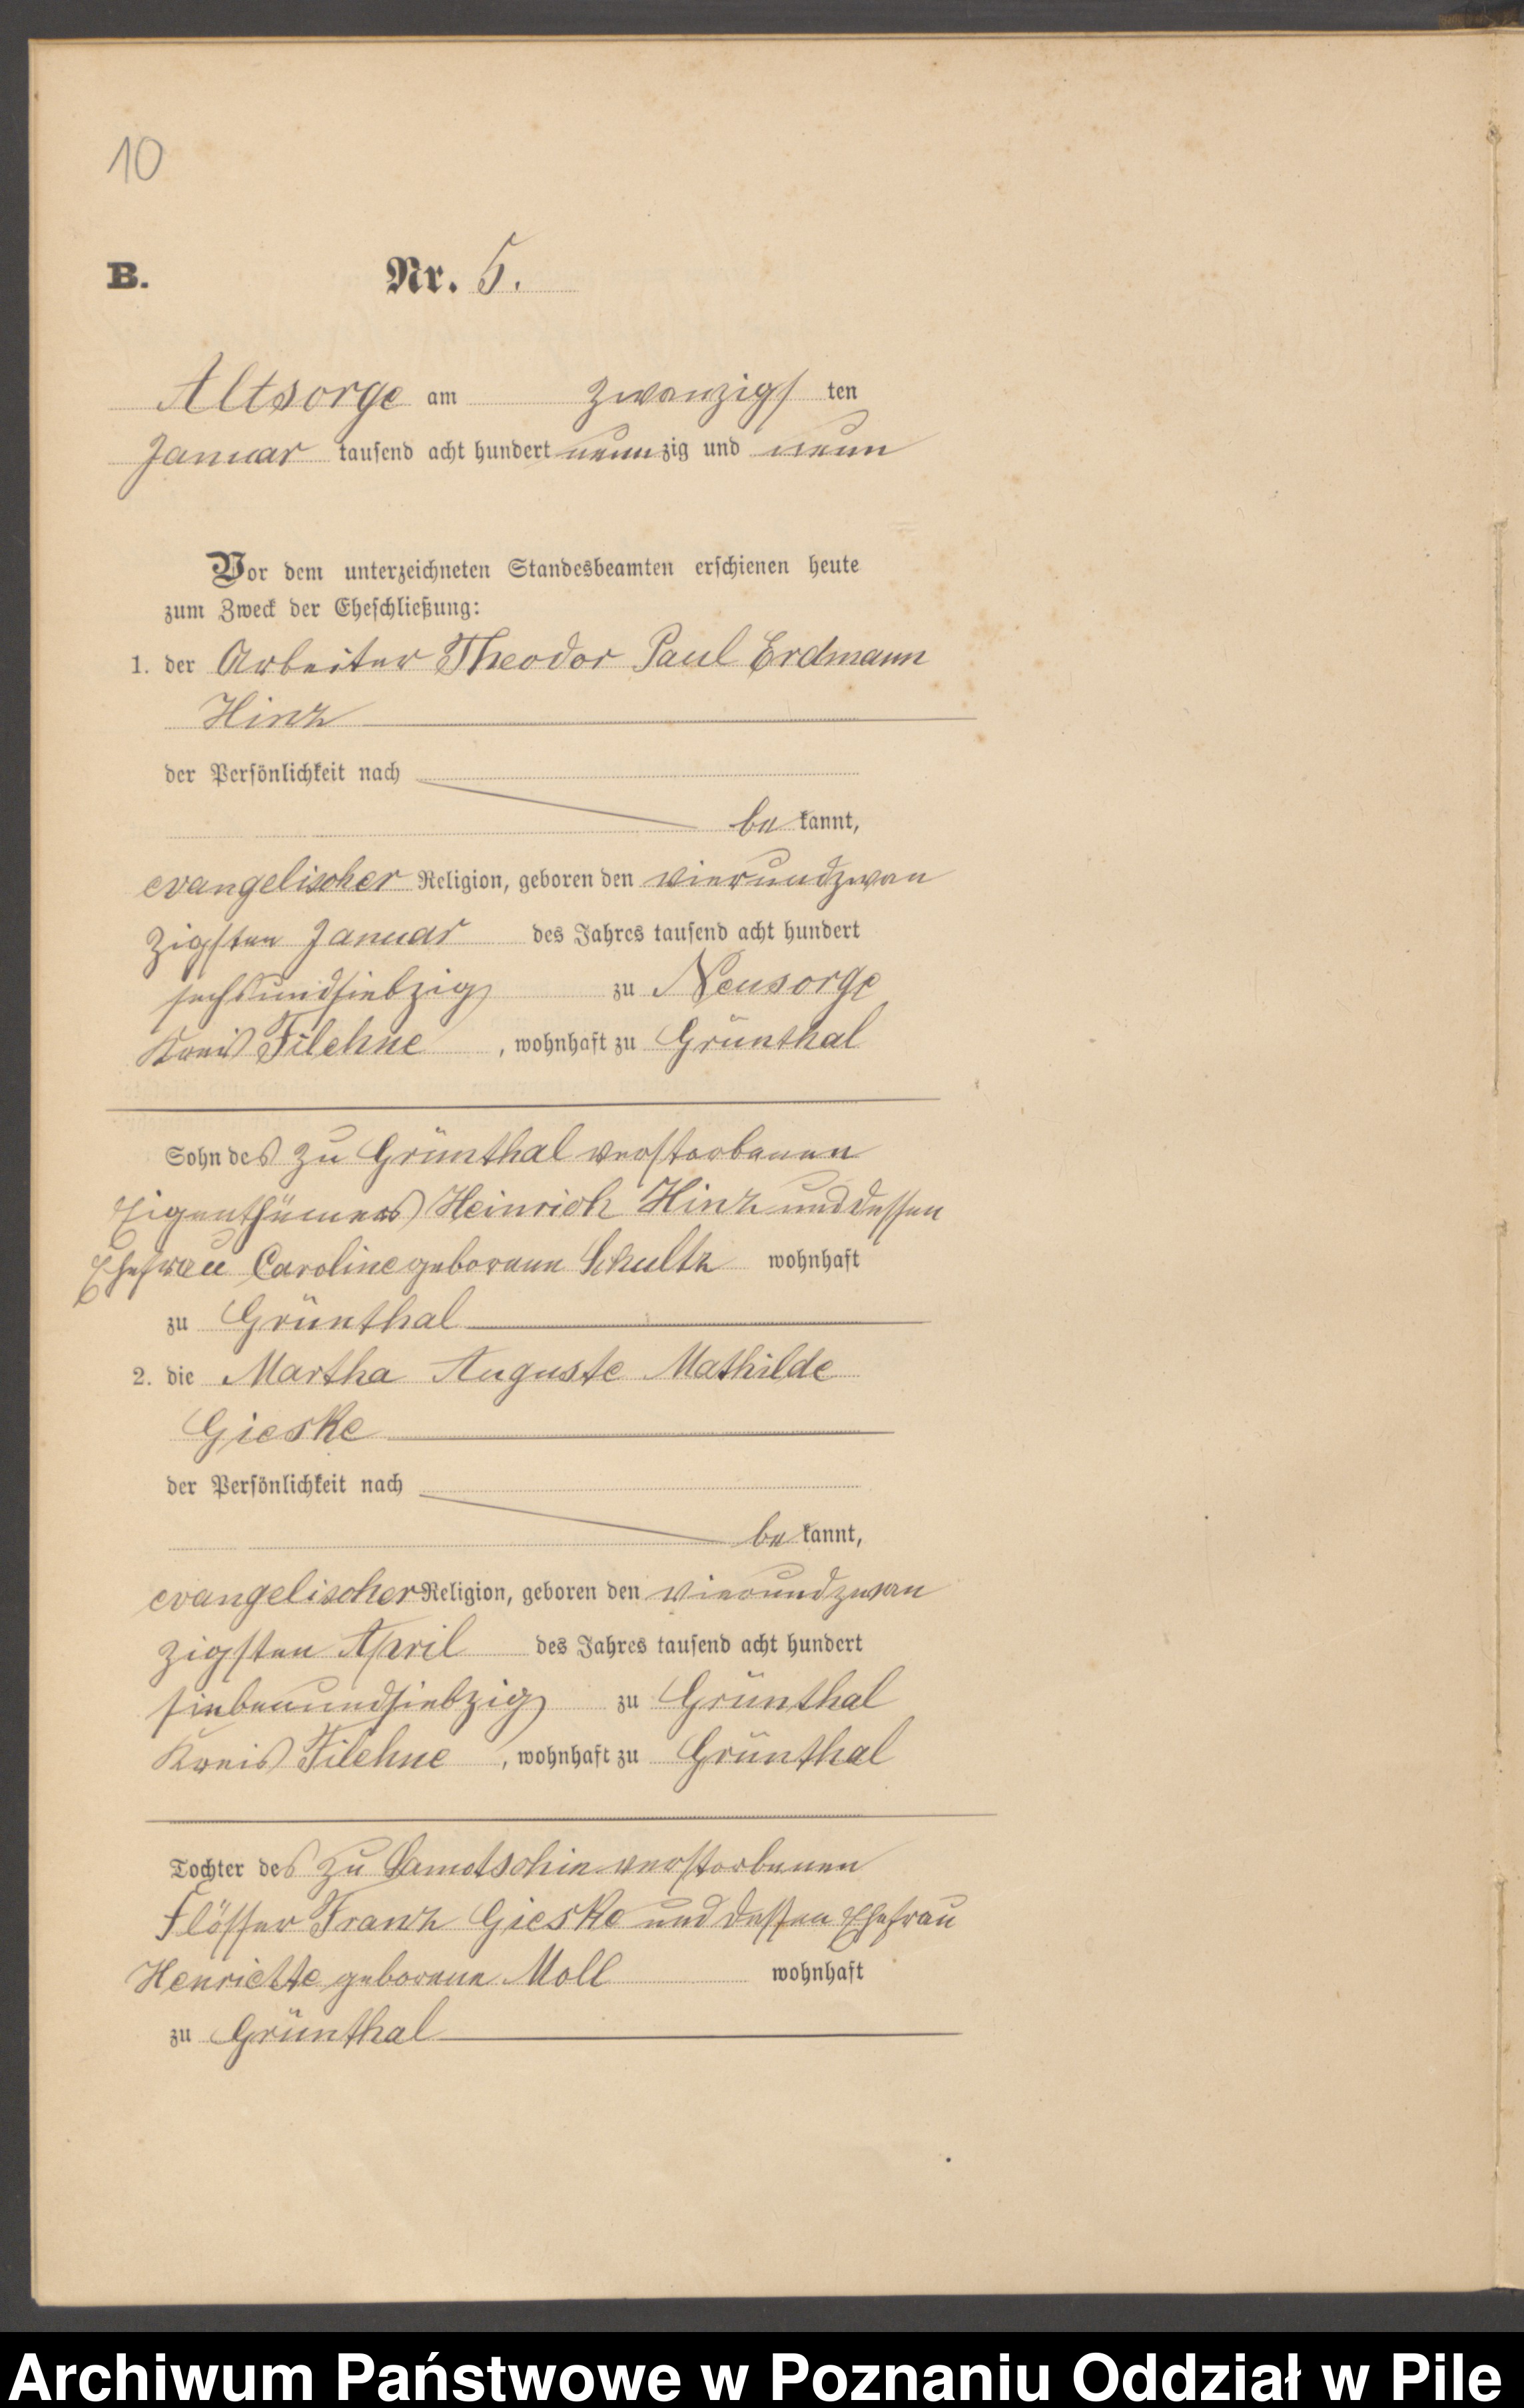 10
B. Nr. 5.
Altsorge am zwanzigsten
Januar tausend acht hundert neunzig und neun
Vor dem unterzeichneten Standesbeamten erschienen heute
zum Zweck der Eheschließung:
1. der Arbeiter Theodor Paul Erdmann
Hinz
der Persönlichkeit nach
bekannt,
evangelischer Religion, geboren den vierundzwan
zigsten Januar des Jahres tausend acht hundert
sechsundsiebzig zu Neusorge
Kreis Filehne, wohnhaft zu Grünthal
Sohn des zu Grünthal verstorbenen
Eigenthümers Heinrich Hinz und dessen
Ehefrau Caroline geborene Schultz wohnhaft
zu Grünthal
2. die Martha Auguste Mathilde
Gieske
der Persönlichkeit nach
bekannt,
evangelischer Religion, geboren den vierundzwan
zigsten April des Jahres tausend acht hundert
siebenundsiebzig zu Grünthal
Kreis Filehne, wohnhaft zu Grünthal
Tochter des zu Samotschin verstorbenen
Flösser Franz Gieske und dessen Ehefrau
Henriette geborene Moll wohnhaft
zu Grünthal
Archiwum Państwowe w Poznaniu Oddział w Pile